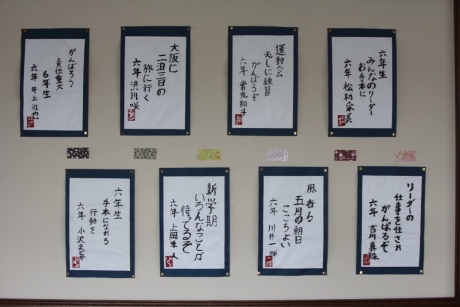 六年生
みんなのリーダー
お手本に
六年 松村
運動会
がんばるぞ
六年
大阪に
二泊三日の
旅に行く
六年
がんばろう
責任重大
6年生
六年 井上
リーダーの
仕事を任され
がんばるぞ
六年 吉川真
風香る
五月の朝日
ここちよい
六年 川井一
新学期
いろんなことが
待ってるぞ
六年 上岡隼人
六年生
手本になれる
行動を
六年 小沢